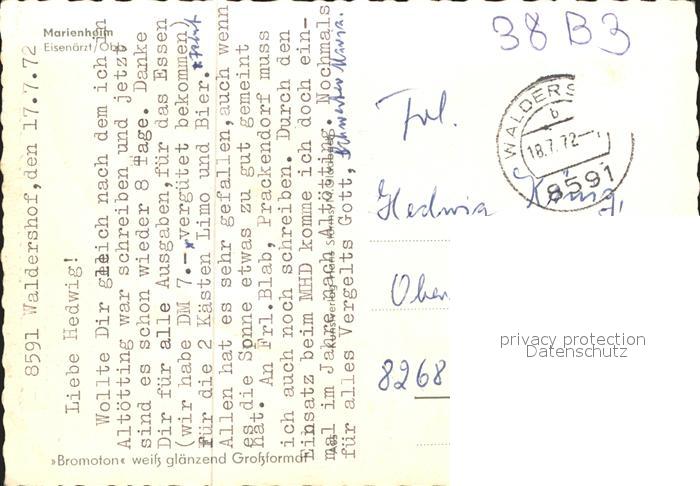 Marienheim
Eisenärzt/Obb
8591 Waldershof,den 17.7.72
Liebe Hedwig!
Wollte Dir gleich nach dem ich in
Altötting war schreiben und jetzt
sind es schon wieder 8 Tage. Danke
Dir für alle Ausgaben,für das Essen
(wir habe DM 7.-- vergütet bekommen)
für die 2 Kästen Limo und Bier. + Fahrt
Allen hat es sehr gefallen,auch wenn
es die Sonne etwas zu gut gemeint
hat. An Frl.Blab, Prackendorf muss
ich auch noch schreiben. Durch den
Einsatz beim MHD komme ich doch ein-
mal im Jahre nach Altötting. Nochmals
für alles Vergelts Gott, Schwester Maria.
»Bromoton« weiß glänzend Großformat
38 B3
WALDERS
b
18.7.72
8591
Frl.
Hedwig König,
Ober
8268
privacy protection
Datenschutz